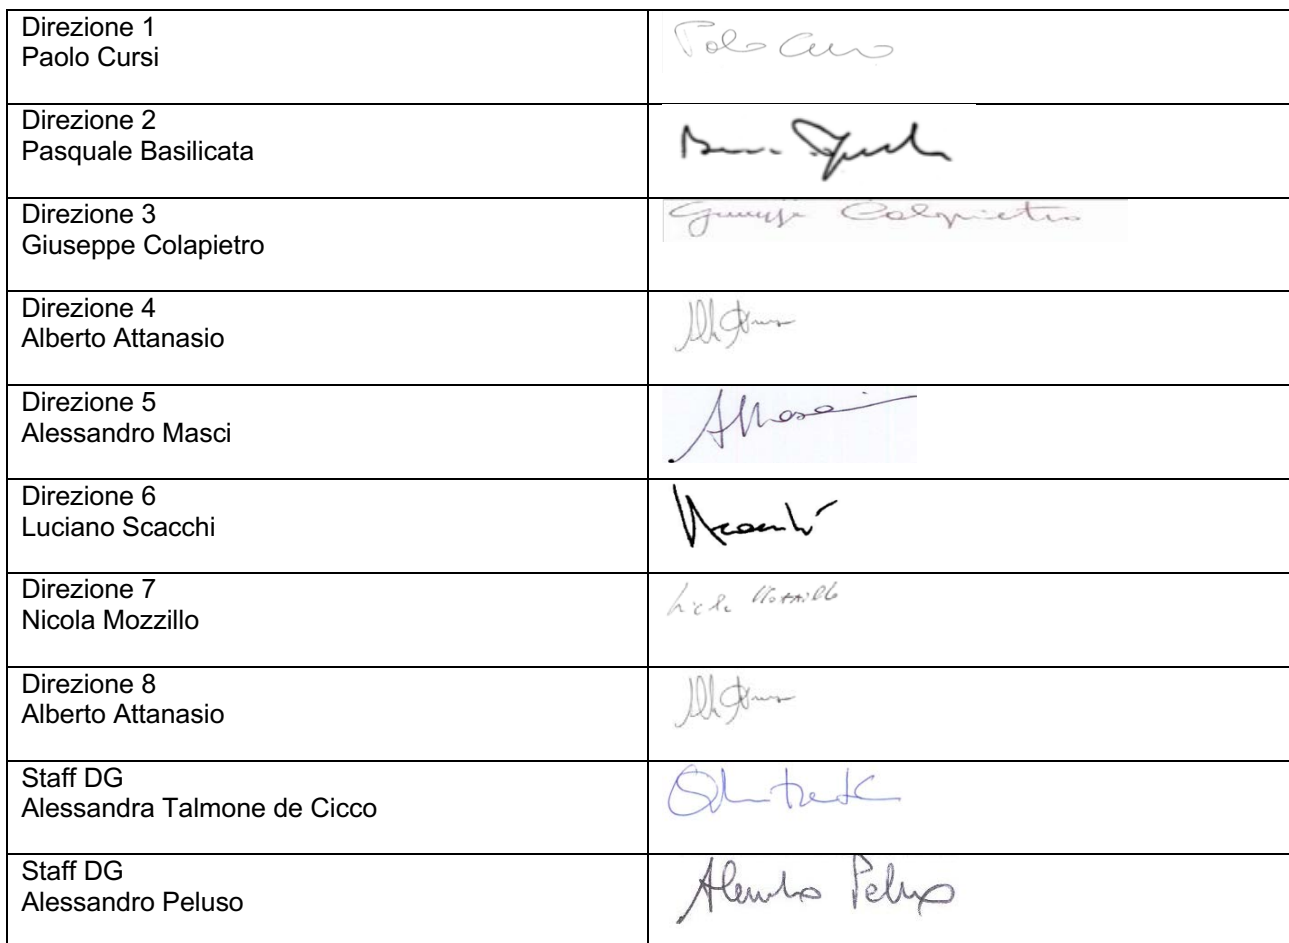 Direzione 1
Paolo Cursi
Direzione 2
Pasquale Basilicata
Direzione 3
Giuseppe Colapietro
Giuseppe Colapietro
Direzione 4
Alberto Attanasio
Direzione 5
Alessandro Masci
Direzione 6
Luciano Scacchi
Direzione 7
Nicola Mozzillo
Nicola Mozzillo
Direzione 8
Alberto Attanasio
Staff DG
Alessandra Talmone de Cicco
Staff DG
Alessandro Peluso